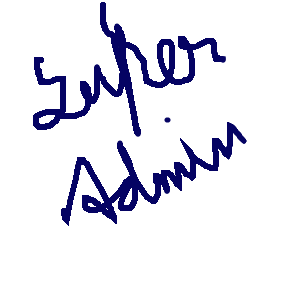 Super
Admin